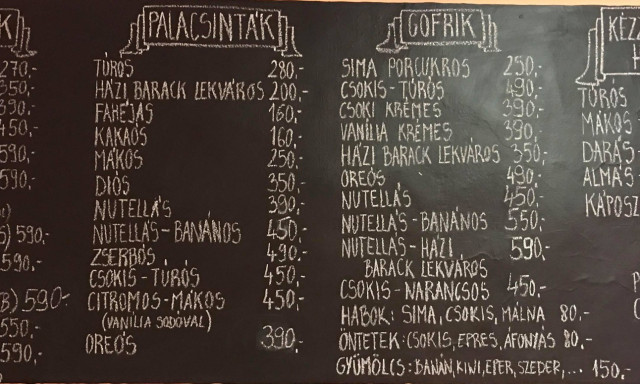 K
270,-
350,-
390,-
450,-
590,-
590,-
590,-
590,-
B) 590,-
550,-
590,-
PALACSINTÁK
TÚRÓS 280,-
HÁZI BARACK LEKVÁROS 200,-
FAHÉJAS 160,-
KAKAÓS 160,-
MÁKOS 250,-
DIÓS 350,-
NUTELLÁS 390,-
NUTELLÁS-BANÁNOS 450,-
ZSERBÓS 490,-
CSOKIS-TÚRÓS 450,-
CITROMOS-MÁKOS 450,-
(VANÍLIA SODÓVAL)
OREÓS 390,-
GOFRIK
SIMA PORCUKROS 250,-
CSOKIS-TÚRÓS 490,-
CSOKI KRÉMES 390,-
VANÍLIA KRÉMES 390,-
HÁZI BARACK LEKVÁROS 350,-
OREÓS 490,-
NUTELLÁS 450,-
NUTELLÁS-BANÁNOS 550,-
NUTELLÁS-HÁZI 590,-
BARACK LEKVÁROS
CSOKIS-NARANCSOS 450,-
HABOK: SIMA, CSOKIS, MÁLNA 80,-
ÖNTETEK: CSOKIS, EPRES, ÁFONYÁS 80,-
GYÜMÖLCS: BANÁN, KIWI, EPER, SZEDER, ... 150,-
KÉZ
TÚRÓS
MÁKOS
DARÁS-
ALMÁS-
KÁPOSZ